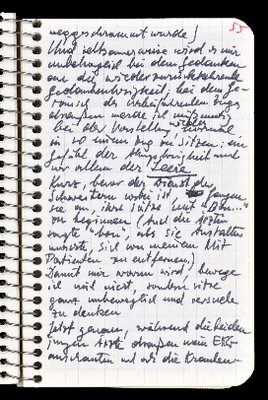 55
weggeschrammt wurde)
Und seltsamerweise wird es mir
unbehaglich bei dem Gedanken
an die wiederzurückkehrende
Gedankenlosigkeit, bei dem Ge-
räusch des vorbeifahrenden Zuges
draußen werde ich
bei der Vorstellung, nochmal
in so einem Zug zu sitzen: ein
Gefühl der und
vor allem der Leere
Kurz, bevor der Dienst der
Schwestern vorbei ist, fangen
sie an, ihre Sätze laut
zu beginnen (Auch die Ärztin
sagte "bon", als sie Anstalten
machte, sich von meinem Mit-
Patienten zu entfernen)
Damit mir warm wird, bewege
ich mich nicht, sondern sitze
ganz unbeweglich und versuche
zu denken
Jetzt genau, während die beiden
jungen Ärzte draußen mein EKG
anschauten und als die Kranken-